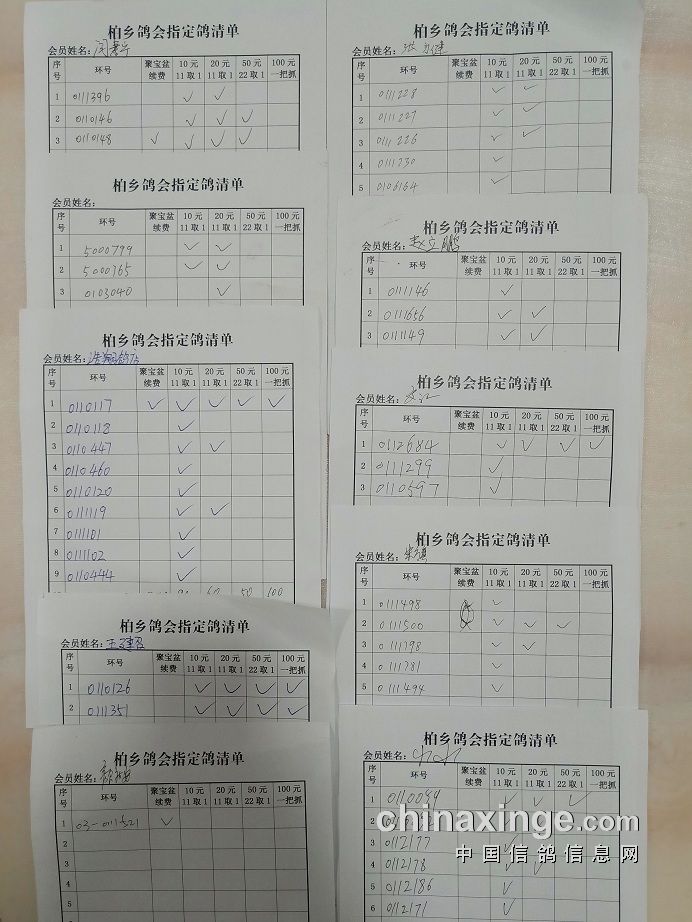 柏乡鸽会指定鸽清单
会员姓名：
序号 环号 聚宝盆续费 10元11取1 20元11取1 50元22取1 100元一把抓
1 0111396 ✓ ✓
2 0110146 ✓ ✓ ✓
3 0110148 ✓ ✓ ✓ ✓
柏乡鸽会指定鸽清单
会员姓名：
序号 环号 聚宝盆续费 10元11取1 20元11取1 50元22取1 100元一把抓
1 5000799 ✓ ✓
2 5000365 ✓ ✓
3 0103040 ✓
柏乡鸽会指定鸽清单
会员姓名：
序号 环号 聚宝盆续费 10元11取1 20元11取1 50元22取1 100元一把抓
1 0110117 ✓ ✓ ✓ ✓ ✓
2 0110118 ✓
3 0110447 ✓ ✓
4 0110460 ✓
5 0110120 ✓
6 0111119 ✓ ✓
7 0111101 ✓
8 0111102 ✓
9 0110444 ✓
90 60 50 100
柏乡鸽会指定鸽清单
会员姓名：
序号 环号 聚宝盆续费 10元11取1 20元11取1 50元22取1 100元一把抓
1 0110126 ✓ ✓ ✓ ✓
2 0111351 ✓ ✓ ✓ ✓
柏乡鸽会指定鸽清单
会员姓名：
序号 环号 聚宝盆续费 10元11取1 20元11取1 50元22取1 100元一把抓
1 03-0111521 ✓
2
3
4
4
柏乡鸽会指定鸽清单
会员姓名：
序号 环号 聚宝盆续费 10元11取1 20元11取1 50元22取1 100元一把抓
1 0111228 ✓ ✓
2 0111227 ✓ ✓
3 0111226 ✓ ✓
4 0111230 ✓
5 0106164 ✓
柏乡鸽会指定鸽清单
会员姓名：赵立鹏
序号 环号 聚宝盆续费 10元11取1 20元11取1 50元22取1 100元一把抓
1 0111146 ✓
2 0111656 ✓ ✓
3 0111149 ✓ ✓
柏乡鸽会指定鸽清单
会员姓名：
序号 环号 聚宝盆续费 10元11取1 20元11取1 50元22取1 100元一把抓
1 0112684 ✓ ✓ ✓ ✓
2 0111299 ✓
3 0110597 ✓ ✓
柏乡鸽会指定鸽清单
会员姓名：
序号 环号 聚宝盆续费 10元11取1 20元11取1 50元22取1 100元一把抓
1 0111498 ✓
2 0111500 ✓ ✓ ✓
3 0111798 ✓ ✓
4 0111781 ✓
5 0111494 ✓
柏乡鸽会指定鸽清单
会员姓名：
序号 环号 聚宝盆续费 10元11取1 20元11取1 50元22取1 100元一把抓
1 0110049 ✓ ✓ ✓
3 0112177 ✓ ✓
4 0112178 ✓ ✓
5 0112186 ✓
6 0112171 ✓
chinaxinge.com
中国信鸽信息网